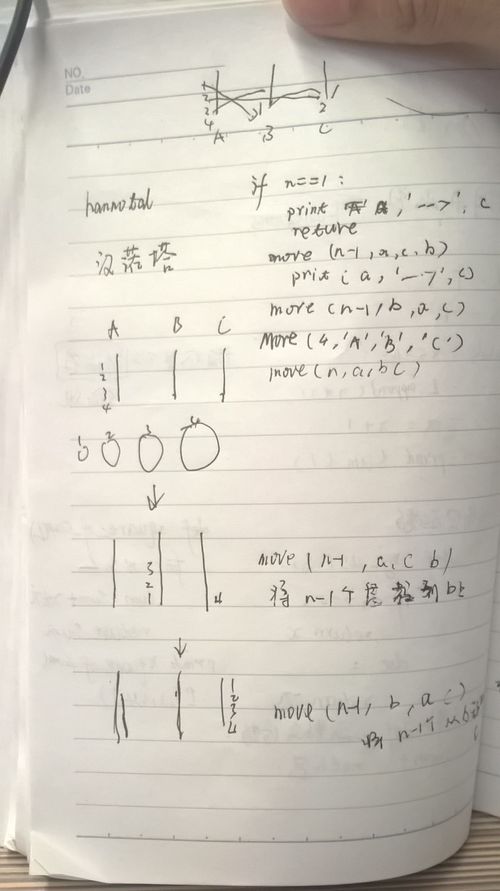 NO.
Date
1
2
3
4
1
2
A B C
if n==1:
print a,'-->',c
reture
hannotal
汉若塔
move (n-1,a,c,b)
print (a,'-->',c)
move (n-1,b,a,c)
Move (4,'A','B','C')
move(n,a,b c)
A B C
1
2
3
4
1 2 3 4
3
2
1
4
move (n-1, a, c b)
将 n-1个 到 b上
1
2
3
4
move (n-1, b, a c)
将 n-1个 从b